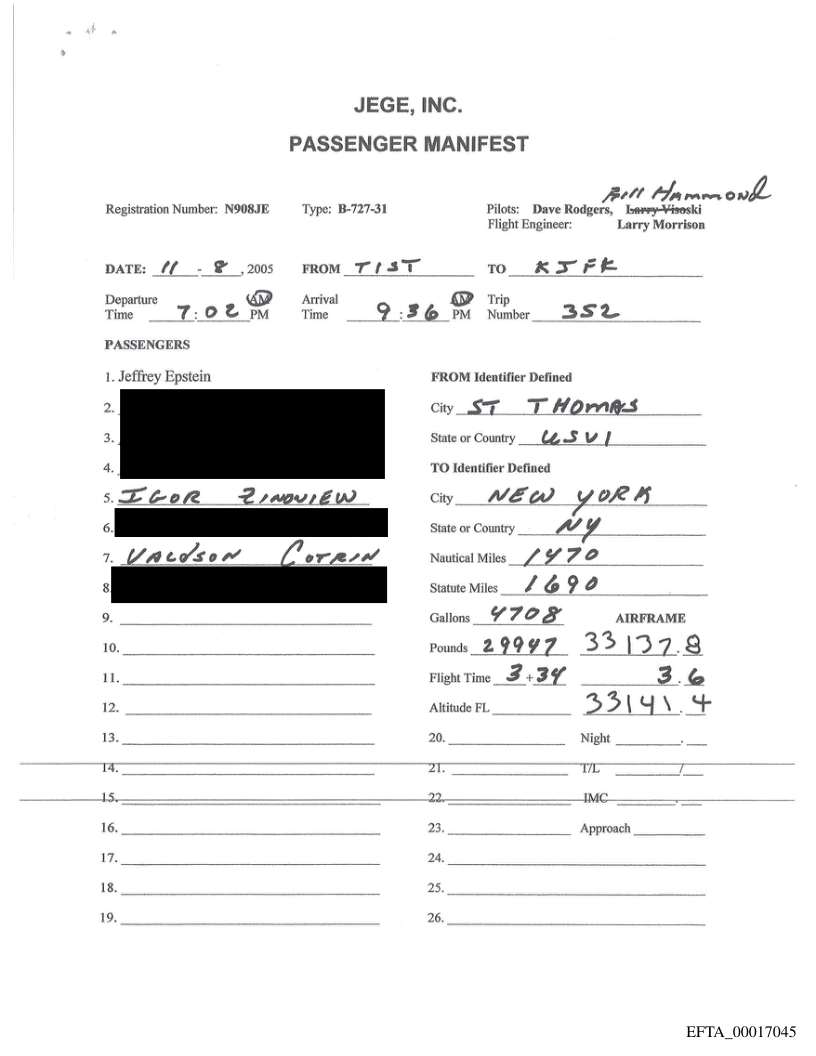 JEGE, INC.
PASSENGER MANIFEST
Bill Hammond
Registration Number: N908JE Type: B-727-31 Pilots: Dave Rodgers, Larry Visoski
Flight Engineer: Larry Morrison
DATE: 11 - 8, 2005 FROM TIST TO KJFK
Departure Time 7:02 AM PM Arrival Time 9:36 AM PM Trip Number 352
PASSENGERS
1. Jeffrey Epstein
2.
3.
4.
5. IGOR ZINOVIEW
6.
7. VALDSON COTRIN
8.
9.
10.
11.
12.
13.
14.
15.
16.
17.
18.
19.
FROM Identifier Defined
City ST THOMAS
State or Country USVI
TO Identifier Defined
City NEW YORK
State or Country NY
Nautical Miles 1470
Statute Miles 1690
Gallons 4708 AIRFRAME
Pounds 29947 33137.8
Flight Time 3+34 3.6
Altitude FL 33141.4
20. Night .
21. T/L /
22. IMC .
23. Approach
24.
25.
26.
EFTA_00017045